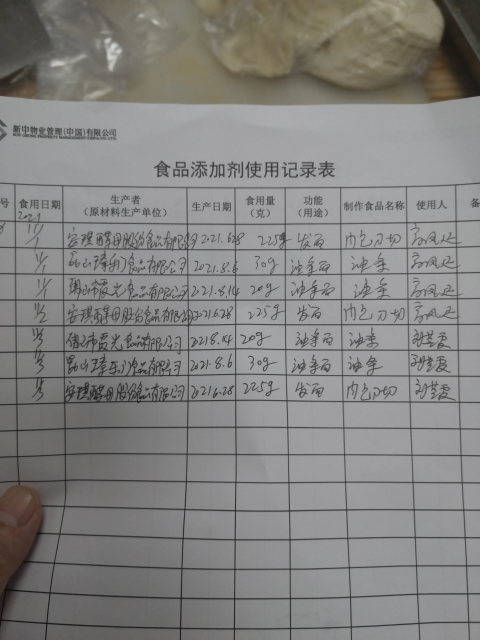 新中物业管理(中国)有限公司
食品添加剂使用记录表
号 食用日期 生产者(原材料生产单位) 生产日期 食用量(克) 功能(用途) 制作食品名称 使用人 备
2021
11/1 安琪酵母股份食品有限公司 2021.6.28 225g 发面 肉包刀切
11/1 昆山臻 食品有限公司 2021.8.6 30g 油条面 油条
11/1 霞光食品有限公司 2021.8.14 20g 油条面 油条
11/2 安琪酵母股份食品有限公司 2021.6.28 225g 发面 肉包刀切
11/3 霞光食品有限公司 2021.8.14 20g 油条面 油条
11/3 昆山臻 食品有限公司 2021.8.6 30g 油条面 油条
11/3 安琪酵母股份食品有限公司 2021.6.28 225g 发面 肉包刀切